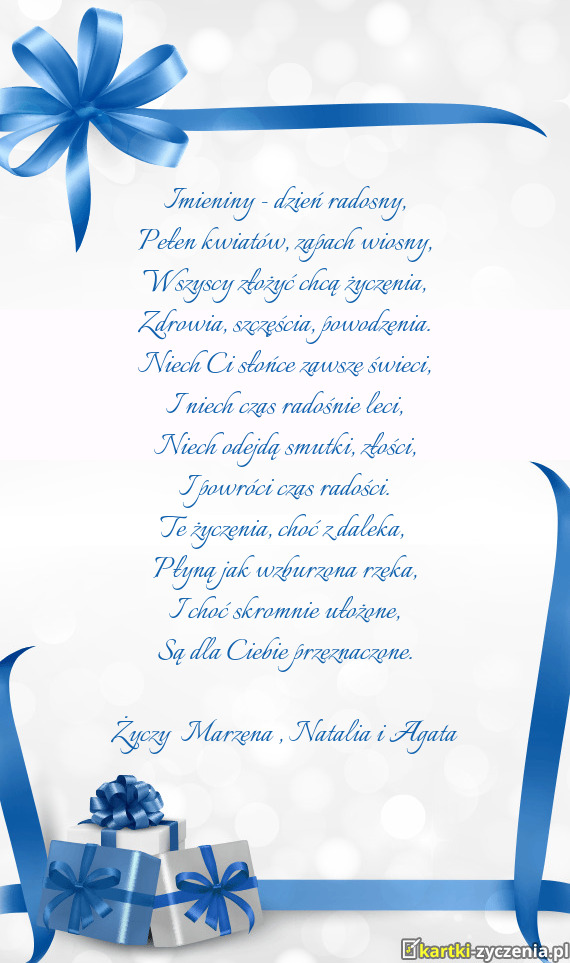 Imieniny - dzień radosny,
Pełen kwiatów, zapach wiosny,
Wszyscy złożyć chcą życzenia,
Zdrowia, szczęścia, powodzenia.
Niech Ci słońce zawsze świeci,
I niech czas radośnie leci,
Niech odejdą smutki, złości,
I powróci czas radości.
Te życzenia, choć z daleka,
Płyną jak wzburzona rzeka,
I choć skromnie ułożone,
Są dla Ciebie przeznaczone.
Życzy Marzena , Natalia i Agata
kartki-zyczenia.pl